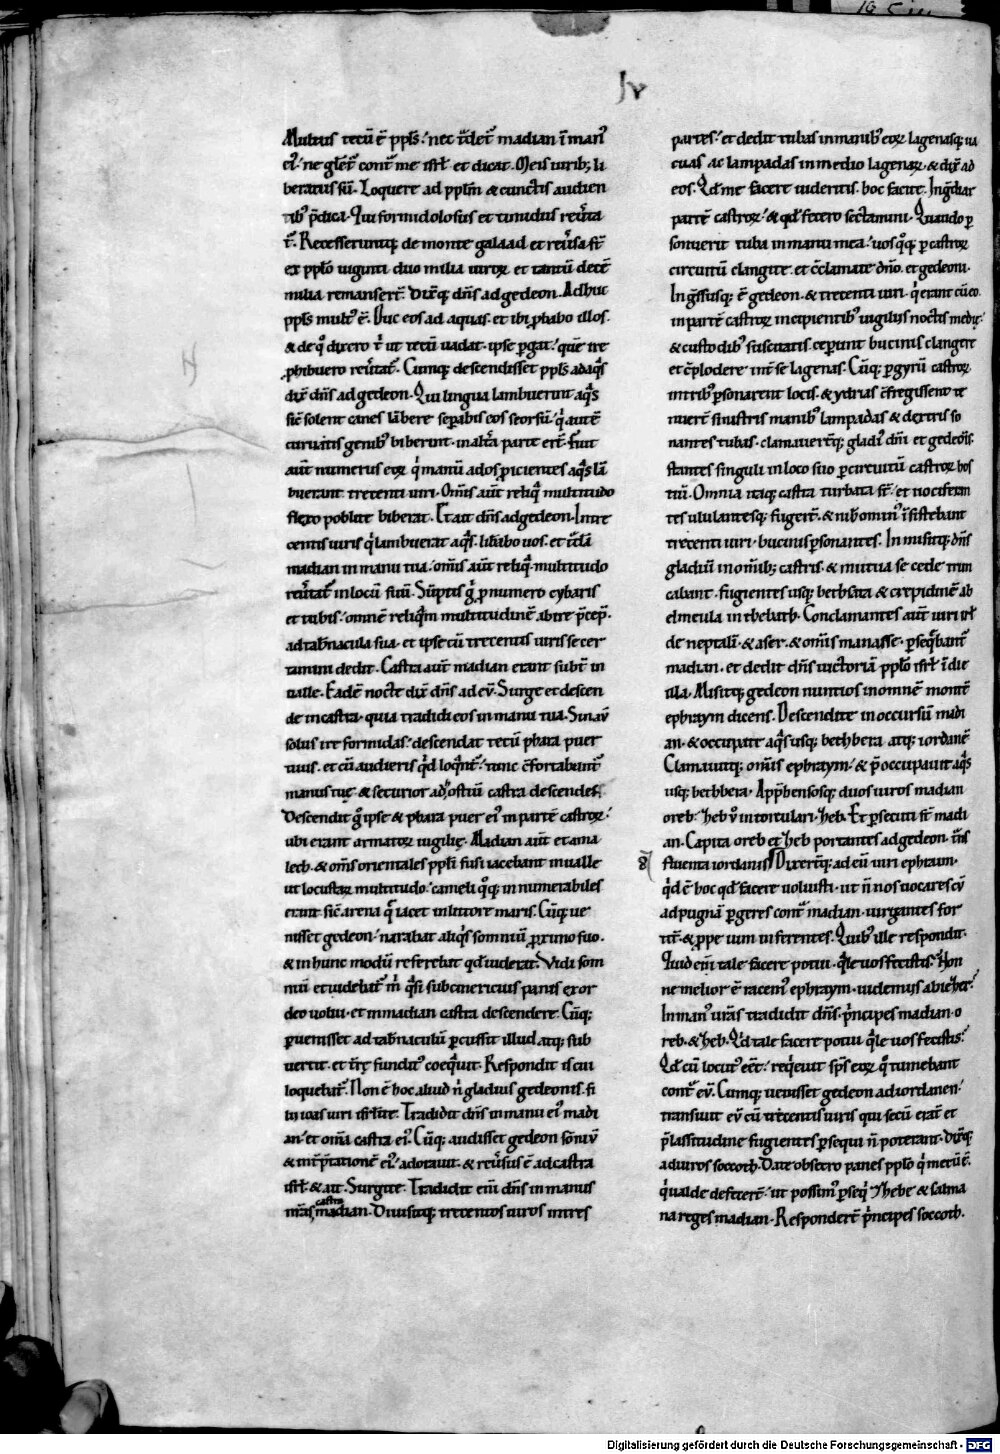 Iv
Multus tecū ē ppls. nec t̄det̄ madian ī man᷒
ei᷒. ne glet̄ cont̄ me isrl̄ et dicat. Meis virib; li
beratus sū. Loquere ad pplm & cunctis audien
tib᷒ p̄dica. Qui formidolosus et timidus rev̄ta
t̄. Recesseruntq; de monte galaad et rev̄sa st̄
ex pplo uiginti duo milia uiroꝝ et tantū decē
milia remanser̄t. Dixitq; dn̄s ad gedeon. Adhuc
ppls mult᷒ ē. Duc eos ad aquas. et ibi ꝓbabo illos.
& de q᷒ dixero t̄ ut tecū uadat. ipse ꝑgat. quē ire
ꝓhibuero rev̄tat̄. Cumq; descendisset ppls ad aq̄s
dix̄ dn̄s ad gedeon. Qui lingua lambuerint aq̄s
sic̄ solent canes lābere sepabis eos seorsū. q̄ autē
curuatis genib᷒ biberint. in alt̄a parte er̄t. fuit
aūt numerus eoꝝ q̄ manū ad os ꝓicientes aq̄s lā
buerant trecenti uiri. Om̄is aūt reliq̄ multitudo
flexo poplite biberat. Et ait dn̄s ad gedeon. In tre
centis uiris q̄ lambuerāt aq̄s. lib̄abo uos. et t̄dā
madian in manu tua. om̄is aūt reliq̄ multitudo
rev̄tat̄ in locū suū. Sūptis ḡ ꝓ numero cybariis
et tubis. omnē reliq̄m multitudinē abire p̄cep̄.
ad tab̄nacula sua. et ipse cū trecentis uiris se cer
tamini dedit. Castra aūt madian erant subt̄ in
ualle. Eadē nocte dix̄ dn̄s ad eū. Surge et descen
de in castra. quia tradidi eos in manu tua. Sin aū
solus ire formidas. descendat tecū phara puer
tuus. et cū audieris qd̄ loq̄nt̄. tunc c̄fortabunt̄
manus tuę. & securior ad hostiū castra descendes.
Descendit ḡ ipse & phara puer ei᷒ in partē castroꝝ.
ubi erant armatoꝝ uigilię. Madian aūt et ama
lech. & om̄s orientales ppli fusi iacebant in ualle
ut locustaꝝ multitudo. cameli q᷒q; innumerabiles
erant sic̄ arena q̄ iacet in littore maris. Cūq; ue
nisset gedeon. narrabat aliq̄s somniū ꝓximo suo.
& in hunc modū referebat qd̄ uiderat. Vidi som
niū et uidebat̄ m̄ q̄si subcinericius panis ex or
deo uolui. et in madian castra descendere. Cūq;
ꝑuenisset ad tab̄naculū ꝑcussit illud atq; sub
uertit. et t̄rę fundit᷒ coeq̄uit. Respondit is cui
loquebat̄. Non ē hoc aliud n̄ gladius gedeonis. fi
lii ioas uiri isrl̄ite. Tradidit dn̄s in manu ei᷒ madi
an. et om̄ia castra ei᷒. Cūq; audisset gedeon sōniū
& int̄p̄tationē ei᷒. adorauit. & rev̄sus ē ad castra
isrl̄. & ait. Surgite. Tradidit eni dn̄s in manus
nr̄as castra madian. Diuisitq; trecentos uiros in tres
partes. et dedit tubas in manib᷒ eoꝝ lagenasq; ua
cuas ac lampadas in medio lagenaꝝ. & dix̄ ad
eos. Qd̄ me facere uideritis. hoc facite. Ingrediar
partē castroꝝ. & qd̄ fecero sectamini. Quando ꝑ
sonuerit tuba in manu mea. uos q᷒q; ꝑ castroꝝ
circuitū clangite. et c̄clamate dn̄o. et gedeoni.
Ingressusq; ē gedeon. & trecenti uiri. q̄ erant cū eo
in partē castroꝝ incipientib᷒ uigiliis noctis medie.
& custodib᷒ suscitatis. ceperunt bucinis clangere
et c̄plodere int̄ se lagenas. Cūq; ꝑ gyrū castroꝝ
in trib᷒ ꝑsonarent locis. & ydrias c̄fregissent te
nuerūt sinistris manib᷒ lampadas & dextris so
nantes tubas. clamauerūtq; gladi᷒ dn̄i et gedeōis.
stantes singuli in loco suo ꝑ circuitū castroꝝ hos
tiū. Omnia itaq; castra turbata st̄. et uociferan
tes ululantesq; fuger̄t. & nihilomin᷒ īsistebant
trecenti uiri. bucinis ꝑsonantes. Inmisitq; dn̄s
gladiū in om̄ib; castris. & mutua se cede trun
cabant. fugientes usq; bethsata & crepidinē ab
elmeula in thebath. Conclamantes aūt uiri isrl̄
de neptali. & aser. & om̄is manasse. ꝑseq̄bant̄
madian. et dedit dn̄s uictoriā pplo isrl̄ ī die
illa. Misitq; gedeon nuntios in omnē montē
ephraym dicens. Descendite in occursū madi
an. & occupate aq̄s usq; bethbera atq; iordanē
Clamauitq; om̄is ephraym. & p̄occupauit aq̄s
usq; bethbera. App̄hensosq; duos uiros madian
oreb. zeb v̄ in torculari. zeb. Et ꝑsecuti st̄ madi
an. Capita oreb et zeb portantes ad gedeon. t̄ns
fluenta iordanis. Dixerūtq; ad eū uiri ephraim.
qd̄ ē hoc qd̄ facere uoluisti. ut n̄ nos uocares cū
ad pugnā ꝑgeres cont̄ madian. iurgantes for
tit̄. & ꝓpe uim inferentes. Quib᷒ ille respondit.
Quid eni tale facere potui. q̄le uos fecistis. Non
ne melior ē racem᷒ ephraym. uidemiis abiezer.
In man᷒ ur̄as tradidit dn̄s. p̄ncipes madian. o
reb. & zeb. Qd̄ tale facere potui q̄le uos fecistis.
Qd̄ cū locut᷒ eēt. req̄euit sp̄s eoꝝ q̄ tumebant
cont̄ eū. Cumq; uenisset gedeon ad iordanen.
transiuit eū cū trecentis uiris qui secū erāt et
p̄ lassitudine fugientes ꝑsequi n̄ poterant. Dixitq;
ad uiros soccoth. Date obsecro panes pplo q̄ mecū ē.
q̄ ualde defecer̄t. ut possim᷒ ꝑseq̄ zhebe & salma
na reges madian. Responder̄t p̄ncipes soccoth.
Digitalisierung gefördert durch die Deutsche Forschungsgemeinschaft - DFG